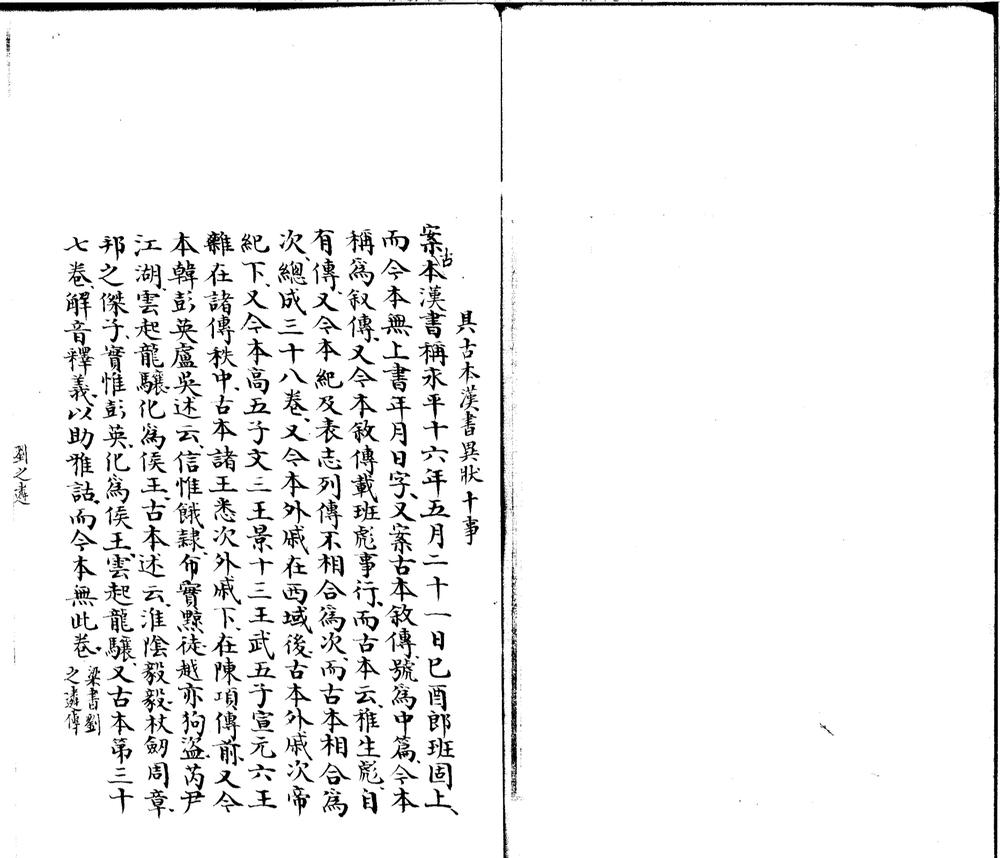 具古本漢書異狀十事
案古本漢書稱永平十六年五月二十一日己酉郎班固上、
而今本無上書年月日字、又案古本敘傳、號爲中篇、今本
稱爲叙傳、又今本敘傳載班彪事行、而古本云、稚生彪、自
有傳、又今本紀及表志列傳不相合爲次、而古本相合爲
次、總成三十八卷、又今本外戚在西域後、古本外戚次帝
紀下、又今本高五子文三王景十三王武五子宣元六王
雜在諸傳秩中、古本諸王悉次外戚下、在陳項傳前、又今
本韓彭英盧吳述云、信惟餓隷、布實黥徒、越亦狗盜、芮尹
江湖、雲起龍驤、化爲侯王、古本述云、淮陰毅毅、杖劒周章、
邦之傑子、實惟彭英、化爲侯王、雲起龍驤、又古本第三十
七卷、解音釋義、以助雅詁、而今本無此卷、
梁書劉
之遴傳
劉之遴